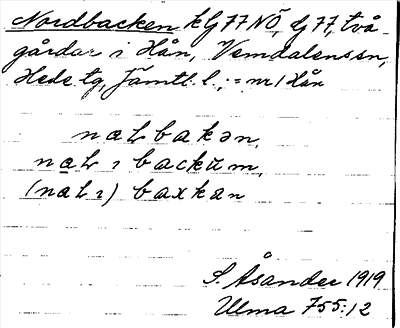 Nordbacken kG77NÖ, G77, två
gårdar i Hån, Vemdalens sn,
Hede tg, Jämtl. l., = nr 1 Hån
naLbakən,
naL ı backūm,
(naL ı) baxkan
S. Åsander 1919
Ulma 755:12